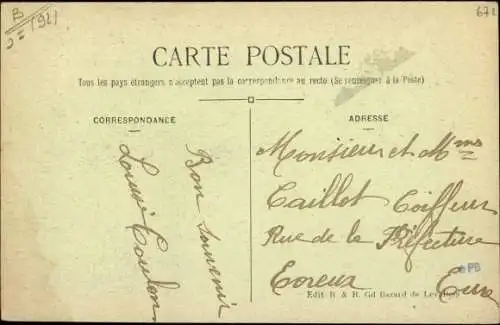 B
672
CARTE POSTALE
Tous les pays étrangers n'acceptent pas la correspondance au recto (Se renseigner à la Poste)
CORRESPONDANCE
ADRESSE
Bon Souvenir
Louise Coulon
Monsieur et Mme
Caillet Coiffeur
Rue de la Préfecture
Evreux Eure
Edit. B & R. Gd Bazard de
PB